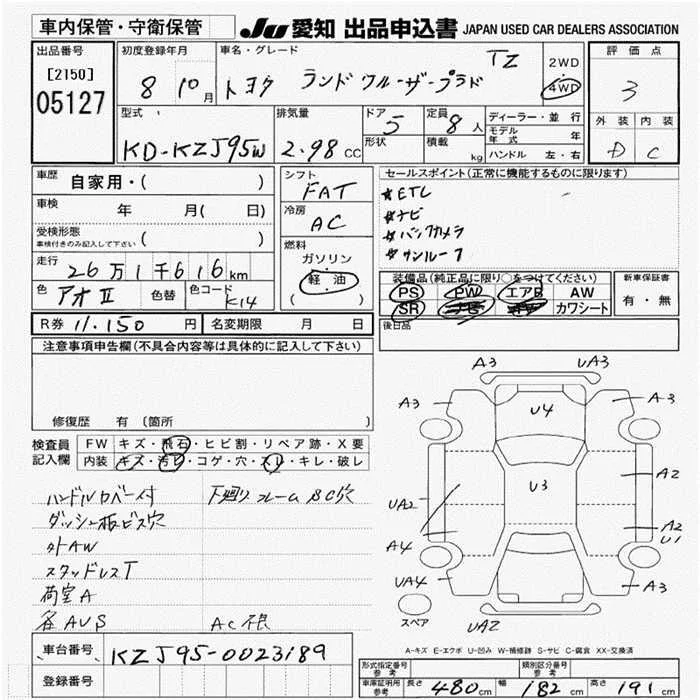 車内保管・守衛保管 JU 愛知 出品申込書 JAPAN USED CAR DEALERS ASSOCIATION
出品番号 初度登録年月 車名・グレード 評価点
[2150] 05127 8 10月 トヨタ ランドクルーザープラド TZ 2WD 4WD 3
型式 排気量 ドア 定員 ディーラー・並行 外装 内装
KD-KZJ95W 2.98cc 5 8人 モデル年式 年 D C
形状 積載 kg ハンドル 左・右
車歴 自家用・( ) シフト FAT セールスポイント(正常に機能するものに限ります)
車検 年 月( 日) 冷房 AC *ETC
受検形態 車検付きのみ記入して下さい ( ) *ナビ
燃料 ガソリン *バックカメラ
走行 26万1千616km 軽・油 *サンルーフ
色 アオII 色替 色コード K14 ( )
装備品(純正品に限り○をつけてください) 新車保証書
PS PW エアB AW 有・無
SR ナビ カワシート
R券 11.150 円 名変期限 月 日 後日品
注意事項申告欄(不具合内容等は具体的に記入して下さい)
修復歴 有 〔箇所 〕
検査員記入欄 FW キズ・飛石・ヒビ割・リペア跡・X要
内装 キズ・汚れ・コゲ・穴・スレ・キレ・破レ
ハンドルカバー付 下廻りフレームSC穴
ダッシュ板ビス穴
外AW
スタッドレスT
荷室A
各AUS AC根
A3 UA3
A3 U4 A3
UA2 U3 A2
A2 U1
A4
UA4 A3
スペア UA2
A-キズ E-エクボ U-凹み W-補修跡 S-サビ C-腐食 XX-交換済
車台番号 KZJ95-0023189
登録番号
形式指定番号 参考 類別区分番号 参考
車庫証明用 参考 長さ 480cm 幅 182cm 高さ 191cm